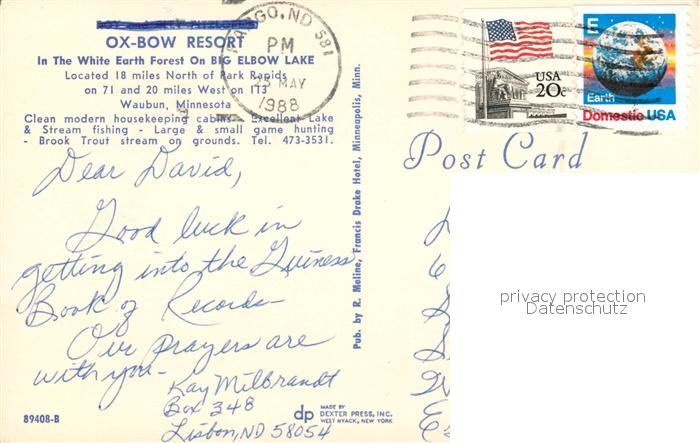 OX-BOW RESORT
In The White Earth Forest On BIG ELBOW LAKE
Located 18 miles North of Park Rapids
on 71 and 20 miles West on 113
Waubun, Minnesota
Clean modern housekeeping cabins - Excellent Lake
& Stream fishing - Large & small game hunting
- Brook Trout stream on grounds. Tel. 473-3531.
FARGO, ND 581
PM
MAY
1988
USA
20c
E
Earth
Domestic USA
Post Card
Dear David,
Good luck in
getting into the Guiness
Book of Records-
Our prayers are
with you-
Kay Milbrandt
Box 348
Lisbon, ND 58054
Pub. by R. Meline, Francis Drake Hotel, Minneapolis, Minn.
privacy protection
Datenschutz
89408-B
dp
MADE BY
DEXTER PRESS, INC.
WEST NYACK, NEW YORK